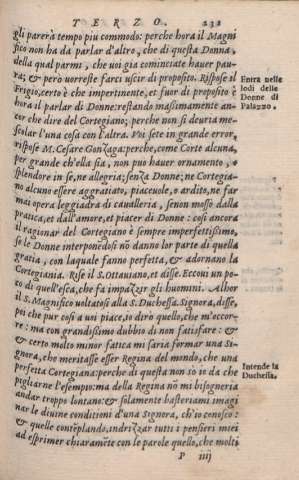 TERZO. 232
gli parerà tempo piu commodo: perche hora il Magni
fico non ha da parlar d'altro, che di questa Donna,
della qual parmi, che uoi gia cominciate hauer pau-
ra; & però uorreste farci uscir di proposito. Rispose il
Frigio, certo è che impertinente, et fuor di proposito è
hora il parlar di Donne: restando massimamente an-
cor che dire del Cortegiano; perche non si deuria me-
scolar l'una cosa con l'altra. Voi sete in grande error,
rispose M. Cesare Gonzaga: perche, come Corte alcuna,
per grande ch'ella sia, non puo hauer ornamento, o
splendore in se, ne allegria; senza Donne; ne Cortegia-
no alcuno essere aggratiato, piaceuole, o ardito, ne far
mai opera leggiadra di caualleria, senon mosso dalla
pratica, et dall'amore, et piacer di Donne: cosi ancora
il ragionar del Cortegiano è sempre imperfettissimo,
se le Donne interponēdosi nō danno lor parte di quella
gratia, con laquale fanno perfetta, & adornano la
Cortegiania. Rise il S. Ottauiano, et disse. Eccoui un po-
co di quell'esca, che fa impazzir gli huomini. Allhor
il S. Magnifico uoltatosi alla S. Duchessa. Signora, disse,
poi che pur cosi a uoi piace, io dirò quello, che m'occor-
re: ma con grandissimo dubbio di non satisfare: &
certo molto minor fatica mi saria formar una Si-
gnora, che meritasse esser Regina del mondo, che una
perfetta Cortegiana: perche di questa non so io da che
pigliarne l'esempio: ma della Regina nō mi bisogneria
andar troppo lontano: & solamente basteriami imagi
nar le diuine conditioni d'una Signora, ch'io conosco:
& quelle contēplando, indrizzar tutti i pensieri miei
ad esprimer chiaramēte con le parole quello, che molti
P iiij
Entra nelle
lodi delle
Donne di
Palazzo.
Intende la
Duchessa.